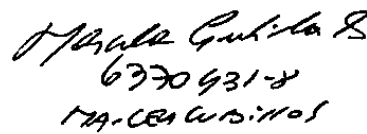 Marcela Cubillos S
6370431-8
MARCELA CUBILLOS